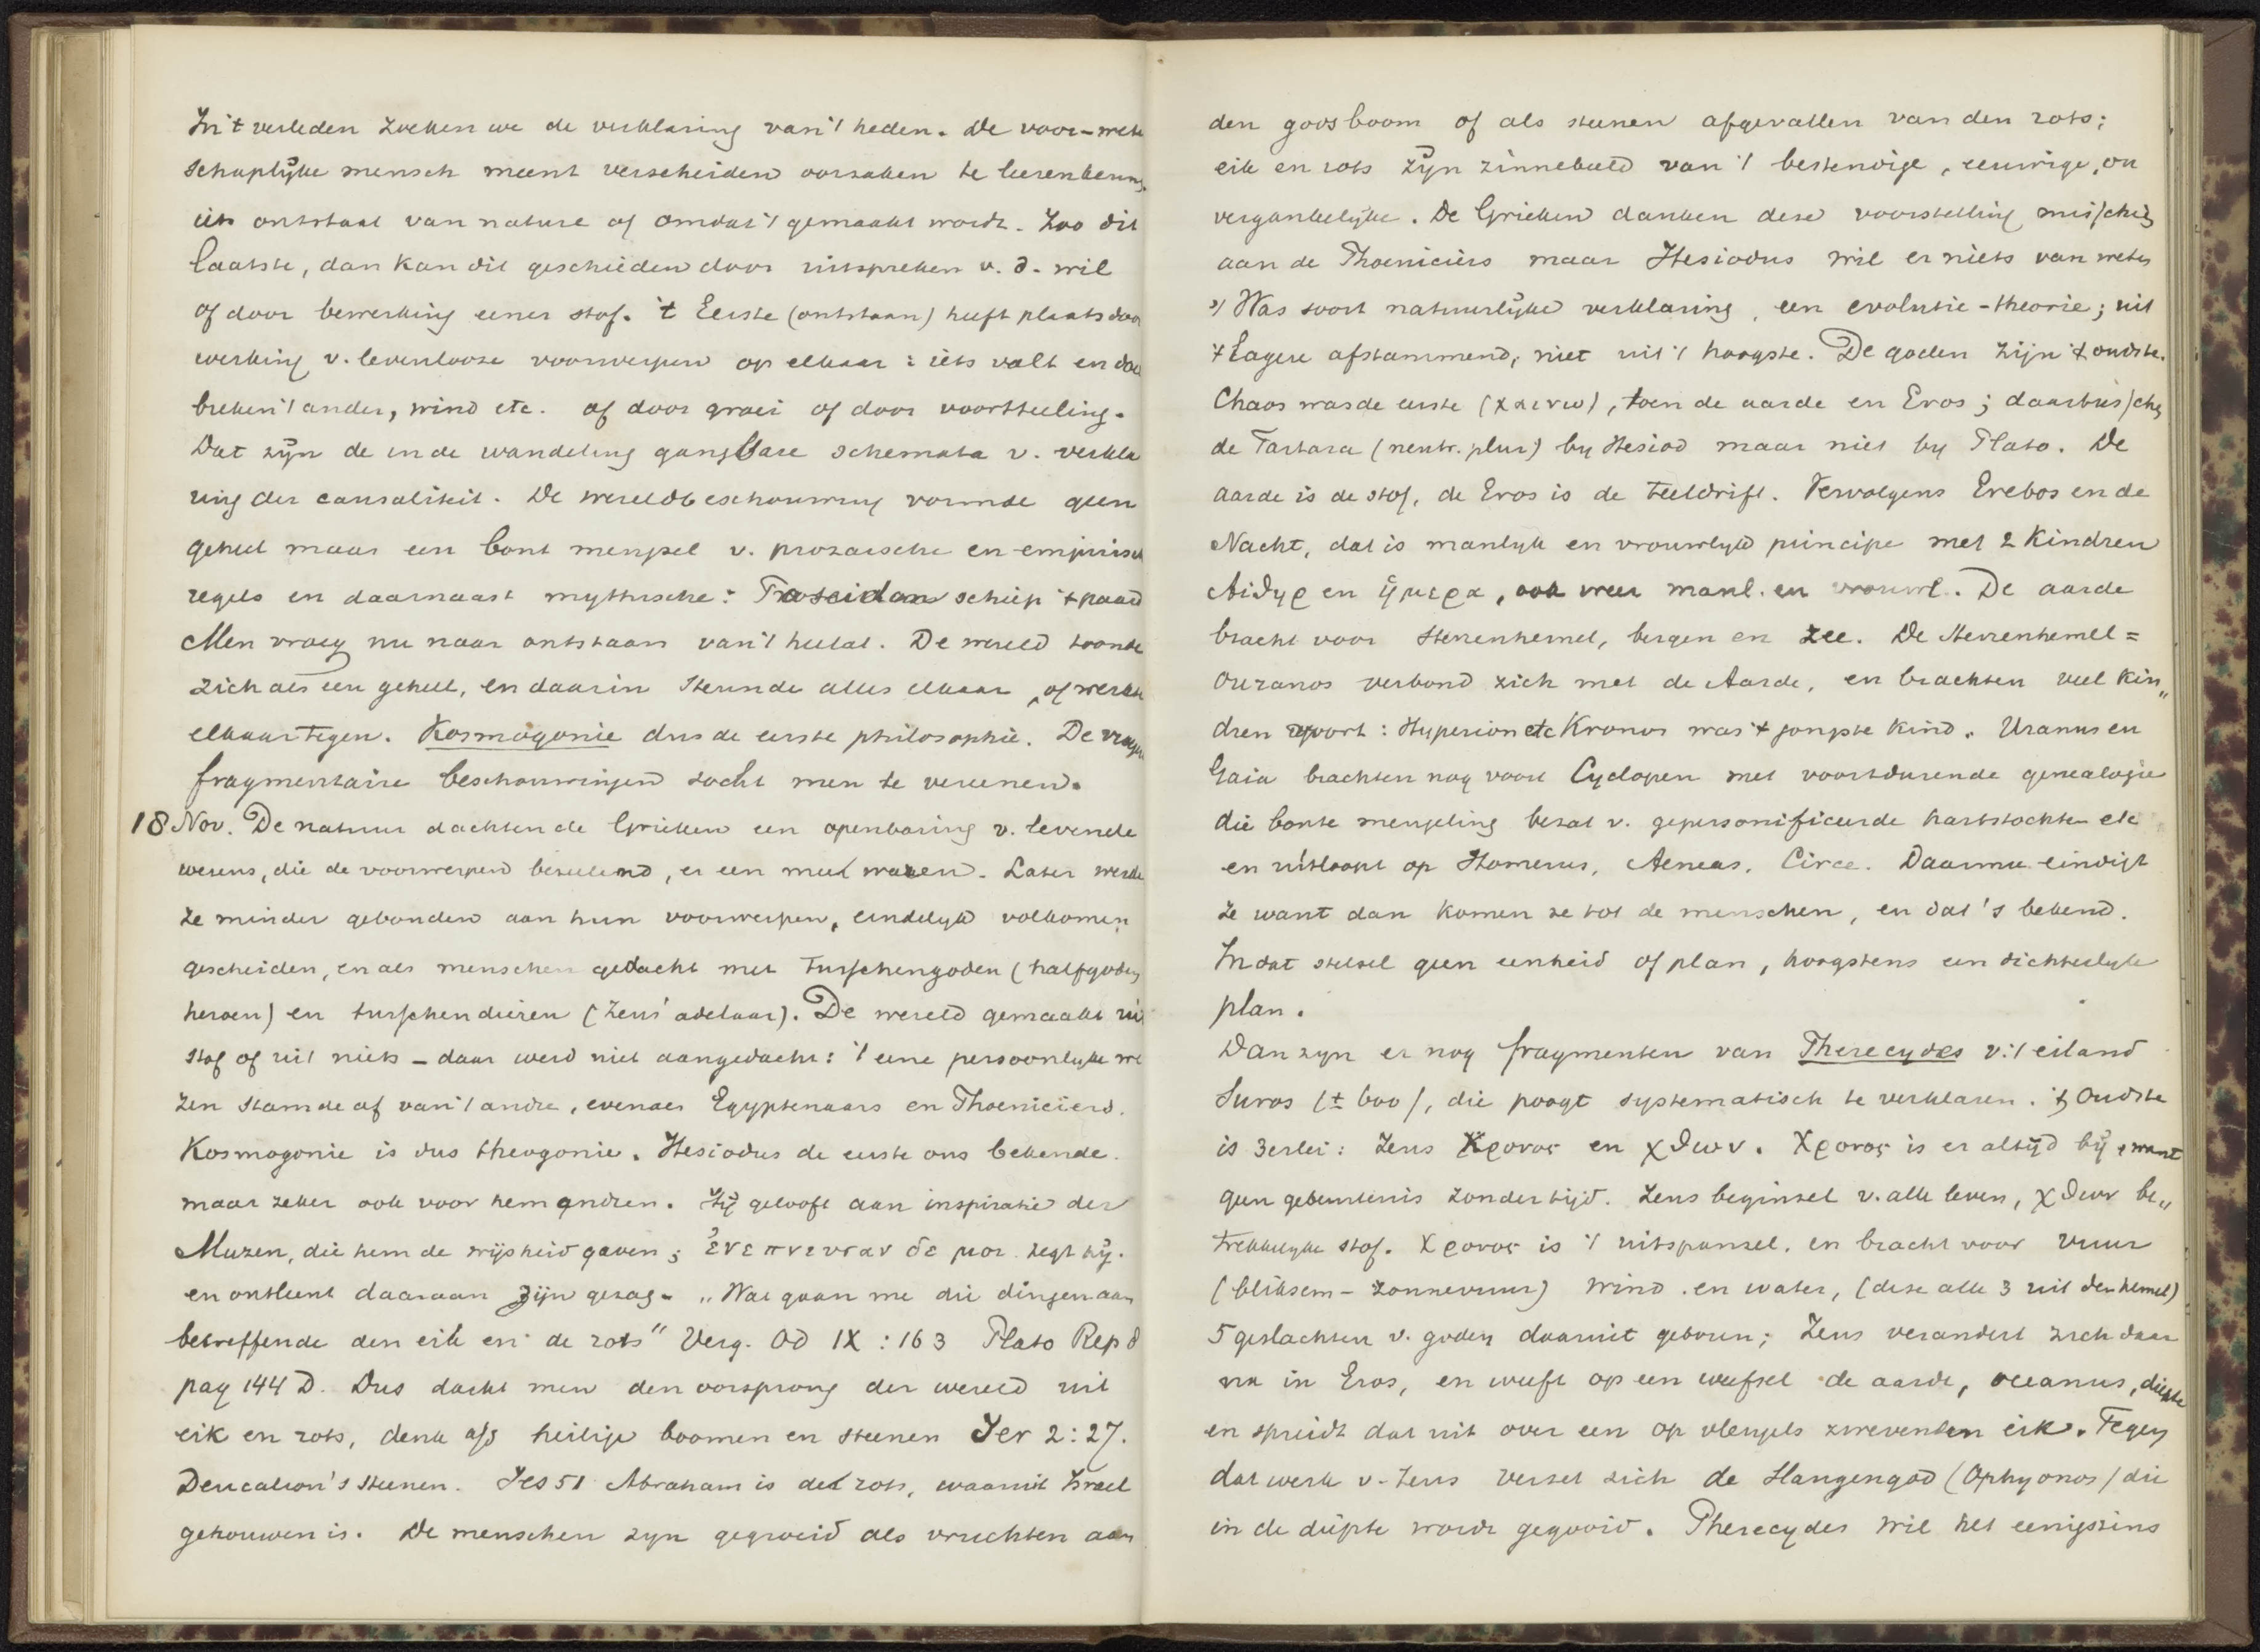 In 't verleden zoeken we de verklaring van 't heden. De voor-wete
schaplijke mensch meent verscheiden oorzaken te leerenkenn.
iets ontstaat van nature of omdat 't gemaakt wordt. Zoo dit
laatste, dan kan dit geschieden door uitspreken v. d. wil
of door bewerking eener stof. 't Eerste (ontstaan) heeft plaats door
werking v. levenlooze voorwerpen op elkaar: iets valt en doet
breken 't ander, wind etc. of door groei of door voortteeling.
Dat zijn de in de wandeling gangbare schemata v. verkla
ring der causaliteit. De wereldbeschouwing vormde geen
geheel maar een bont mengsel v. prozaische en empirisch
regels en daarnaast mythische: Poseidon schiep 't paard
Men vroeg nu naar ontstaan van 't heelal. De wereld toonde
zich als een geheel, en daarin steunde alles elkaar, of werkte
elkaar tegen. Kosmogonie dus de eerste philosophie. De vroeg
fragmentaire beschouwingen zocht men te vereenen.
18 Nov. De natuur dachten de Grieken een openbaring v. levende
wezens, die de voorwerpen bezielend, er een mee waren. Later werde
ze minder gebonden aan hun voorwerpen, eindelijk volkomen
gescheiden, en als menschen gedacht met tusschengoden (halfgoden
heroen) en tusschendieren (Zeus' adelaar). De wereld gemaakt uit
stof of uit niets – daar werd niet aangedacht: 't eene persoonlyke we
zen stamde af van 't andre, evenals Egyptenaars en Phoeniciers.
Kosmogonie is dus theogonie. Hesiodus de eerste ons bekende.
maar zeker ook voor hem andren. Hij gelooft aan inspiratie der
Muzen, die hem de wijsheid gaven; ἐνεπνευσαν δε μοι zegt hij.
en ontleent daaraan zijn gezag. „Wat gaan me die dingen aan
betreffende den eik en de rots" Verg. Od IX : 163 Plato Rep 8
pag 144 D. Dus dacht men den oorsprong der wereld uit
eik en rots, denk a/d heilige boomen en steenen Jer 2:27.
Deucalion's steenen. Jes 51 Abraham is de rots, waaruit Israel
gehouwen is. De menschen zyn gegroeid als vruchten aan
den goosboom of als steenen afgevallen van den rots;
eik en rots zijn zinnebeeld van 't bestendige, eeuwige, on
vergankelijke. De Grieken danken deze voorstelling misschien
aan de Phoeniciërs maar Hesiodus wil er niets van weten
Was soort natuurlijke verklaring, een evolutie-theorie; uit
't Lagere afstammend, niet uit 't hoogste. De goden zijn 't oudste.
Chaos was de eerste (χαινω), toen de aarde en Eros; daartusschen
de Tartara (neutr. plur) by Hesiod maar niet by Plato. De
aarde is de stof, de Eros is de teeldrift. Vervolgens Erebos en de
Nacht, dat is manlyk en vrouwlyk principe met 2 kindren
Aiθηρ en ἡμερα, ook weer manl. en vrouwl. De aarde
bracht voor sterrenhemel, bergen en zee. De sterrenhemel =
Ouranos verbond zich met de Aarde, en brachten veel kin„
dren voort: Hyperion etc Kronos was 't jongste kind. Uranus en
Gaia brachten nog voort Cyclopen met voortdurende genealogie
die bonte mengeling bevat v. gepersonificeerde hartstochten etc
en uitloopt op Homerus, Aeneas, Circe. Daarmee eindigt
ze want dan komen ze tot de menschen, en dat's bekend.
In dat stelsel geen eenheid of plan, hoogstens een dichterlyk
plan.
Dan zyn er nog fragmenten van Pherecydes v. 't eiland
Suros (± 600), die poogt systematisch te verklaren. 't Oudste
is 3erlei: Zeus Χρονος en χθων. Χρονος is er altijd bij, want
geen gebeurtenis zonder tijd. Zeus beginsel v. alle leven, χθων be„
trekkelyke stof. Χρονος is 't uitspansel, en bracht voor vuur
(bliksem – zonnevuur) wind en water, (deze alle 3 uit den hemel)
5 geslachten v. goden daaruit geboren; Zeus verandert zich daar
na in Eros, en weeft op een weefsel de aarde, oceanus, diepte
en spreidt dat uit over een op vleugels zwevenden eik. Tegen
dat werk v. Zeus verzet zich de Slangengod (Ophyonos) die
in de diepte wordt gegooid. Pherecydes wil het eenigszins